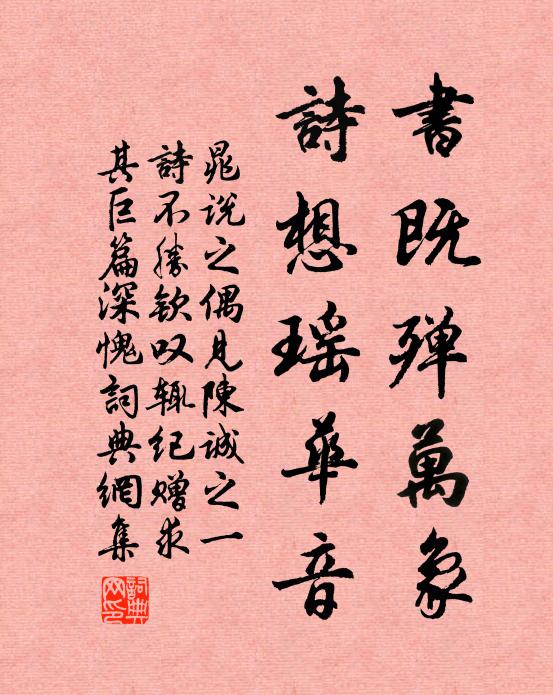 書既殫萬象
詩想瑶華音
晁说之偶見陳诚之一
詩不勝欽叹辄纪赠求
其巨篇深愧詞典網集
詞典
网印